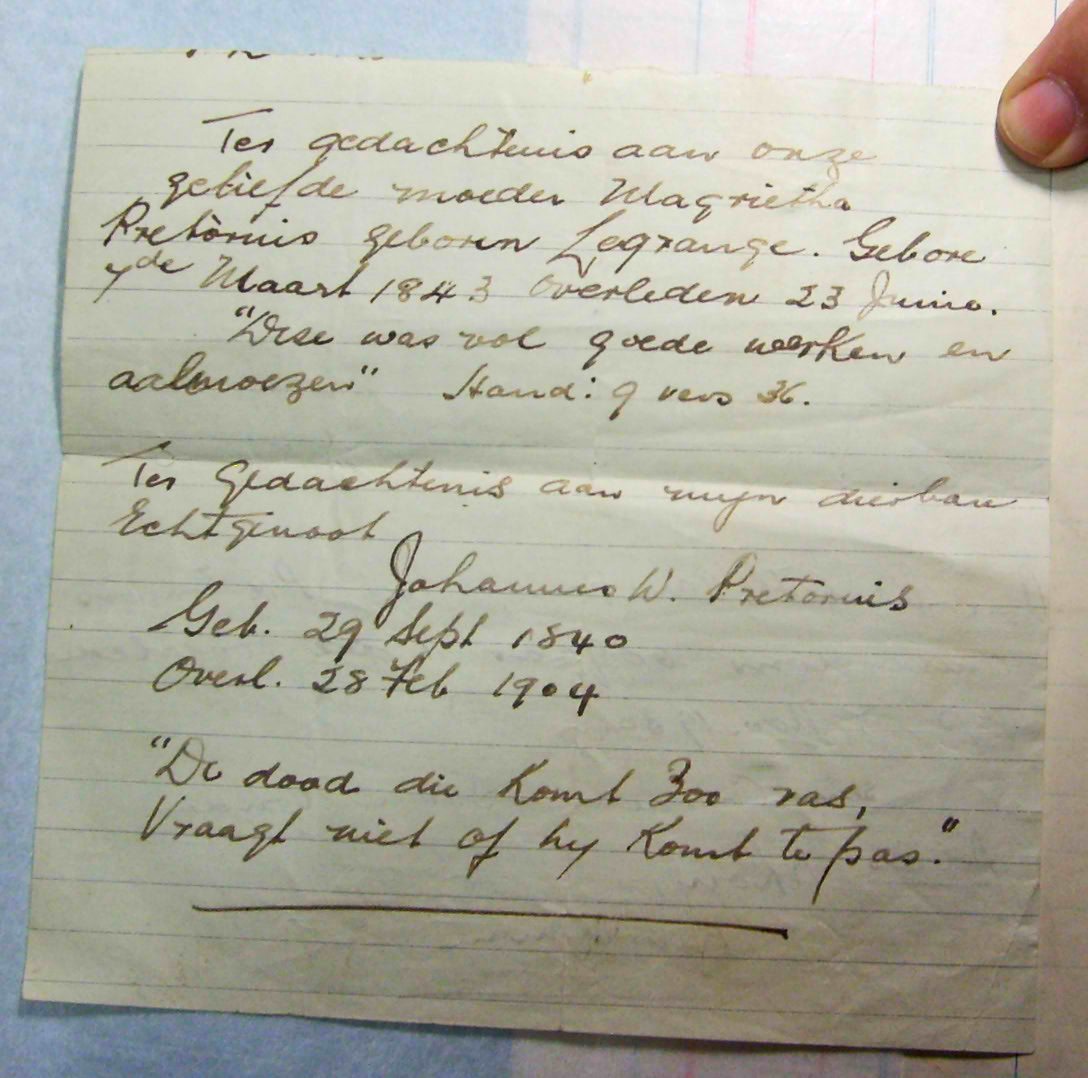 Ter gedachtenis aan onze
geliefde moeder Magrietha
Pretorius geboren Legrange. Gebore
7de Maart 1843 Overleden 23 Junie.
"Dese was vol goede werken en
aalmoezen" Hand: 9 vers 36.
Ter Gedachtenis aan myn dierbare
Echtgenoot
Johannes W. Pretorius
Geb. 29 Sept 1840
Overl. 28 Feb 1904
"De dood die Komt Zoo ras,
Vraagt niet of hy Komt te pas."